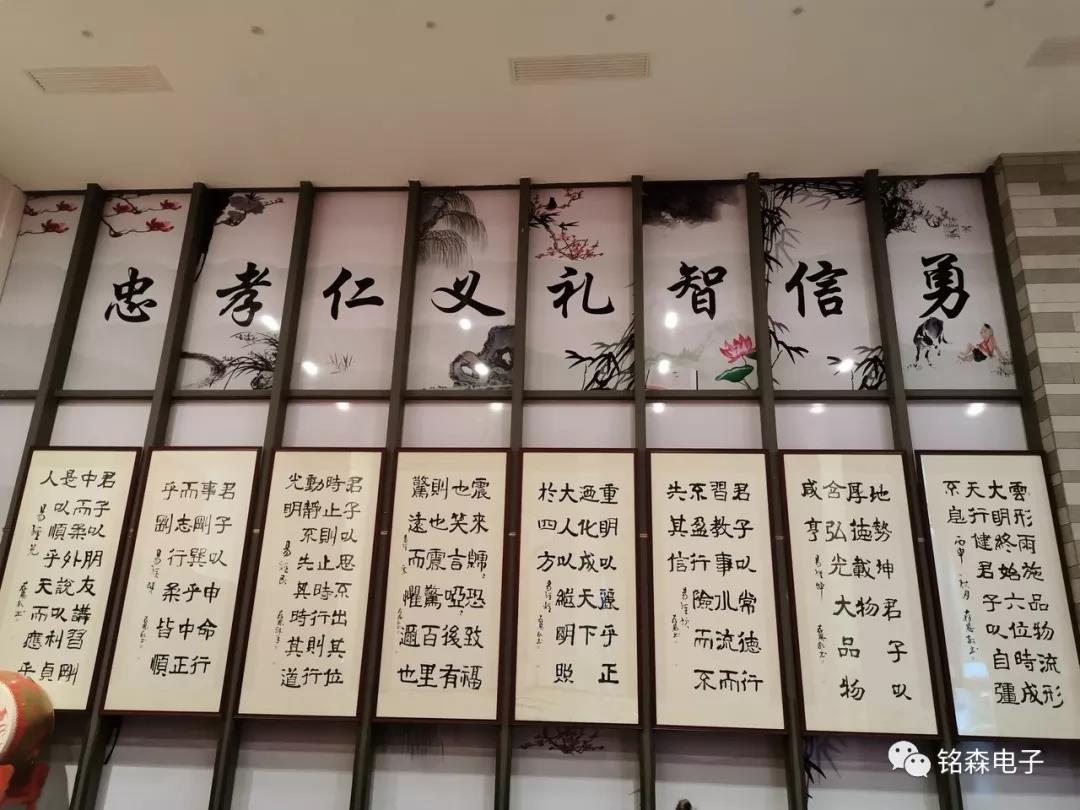 忠孝仁义礼智信勇
雲形雨施品物流形
大明終始六位時成
天行健君子以自彊
不息 丙申秋月
地勢坤君子以
厚德載物
含弘光大品物
咸亨 易經坤
君子以常德行
習教事水流而
不盈行險而不
失其信
重明以麗乎正
迺化成天下
大人以繼明照
於四方 易經離
震來虩虩恐致福
也笑言啞啞後有
則也震驚百里
驚遠而懼邇也
君子以思不出其位
時止則止時行則行
動靜不失其時其道
光明 易經艮
君子以申命行
事剛巽乎中正
而志行柔皆順
乎剛 易經巽
君子以朋友講習剛
中而柔外說以利貞
是以順乎天而應乎
人 易經兌
铭森电子